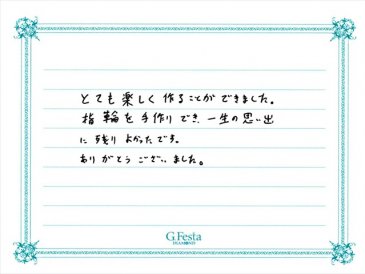 とても楽しく作ることができました。
指輪を手作りでき、一生の思い出
に残りよかったです。
ありがとうございました。
G.Festa
DIAMOND